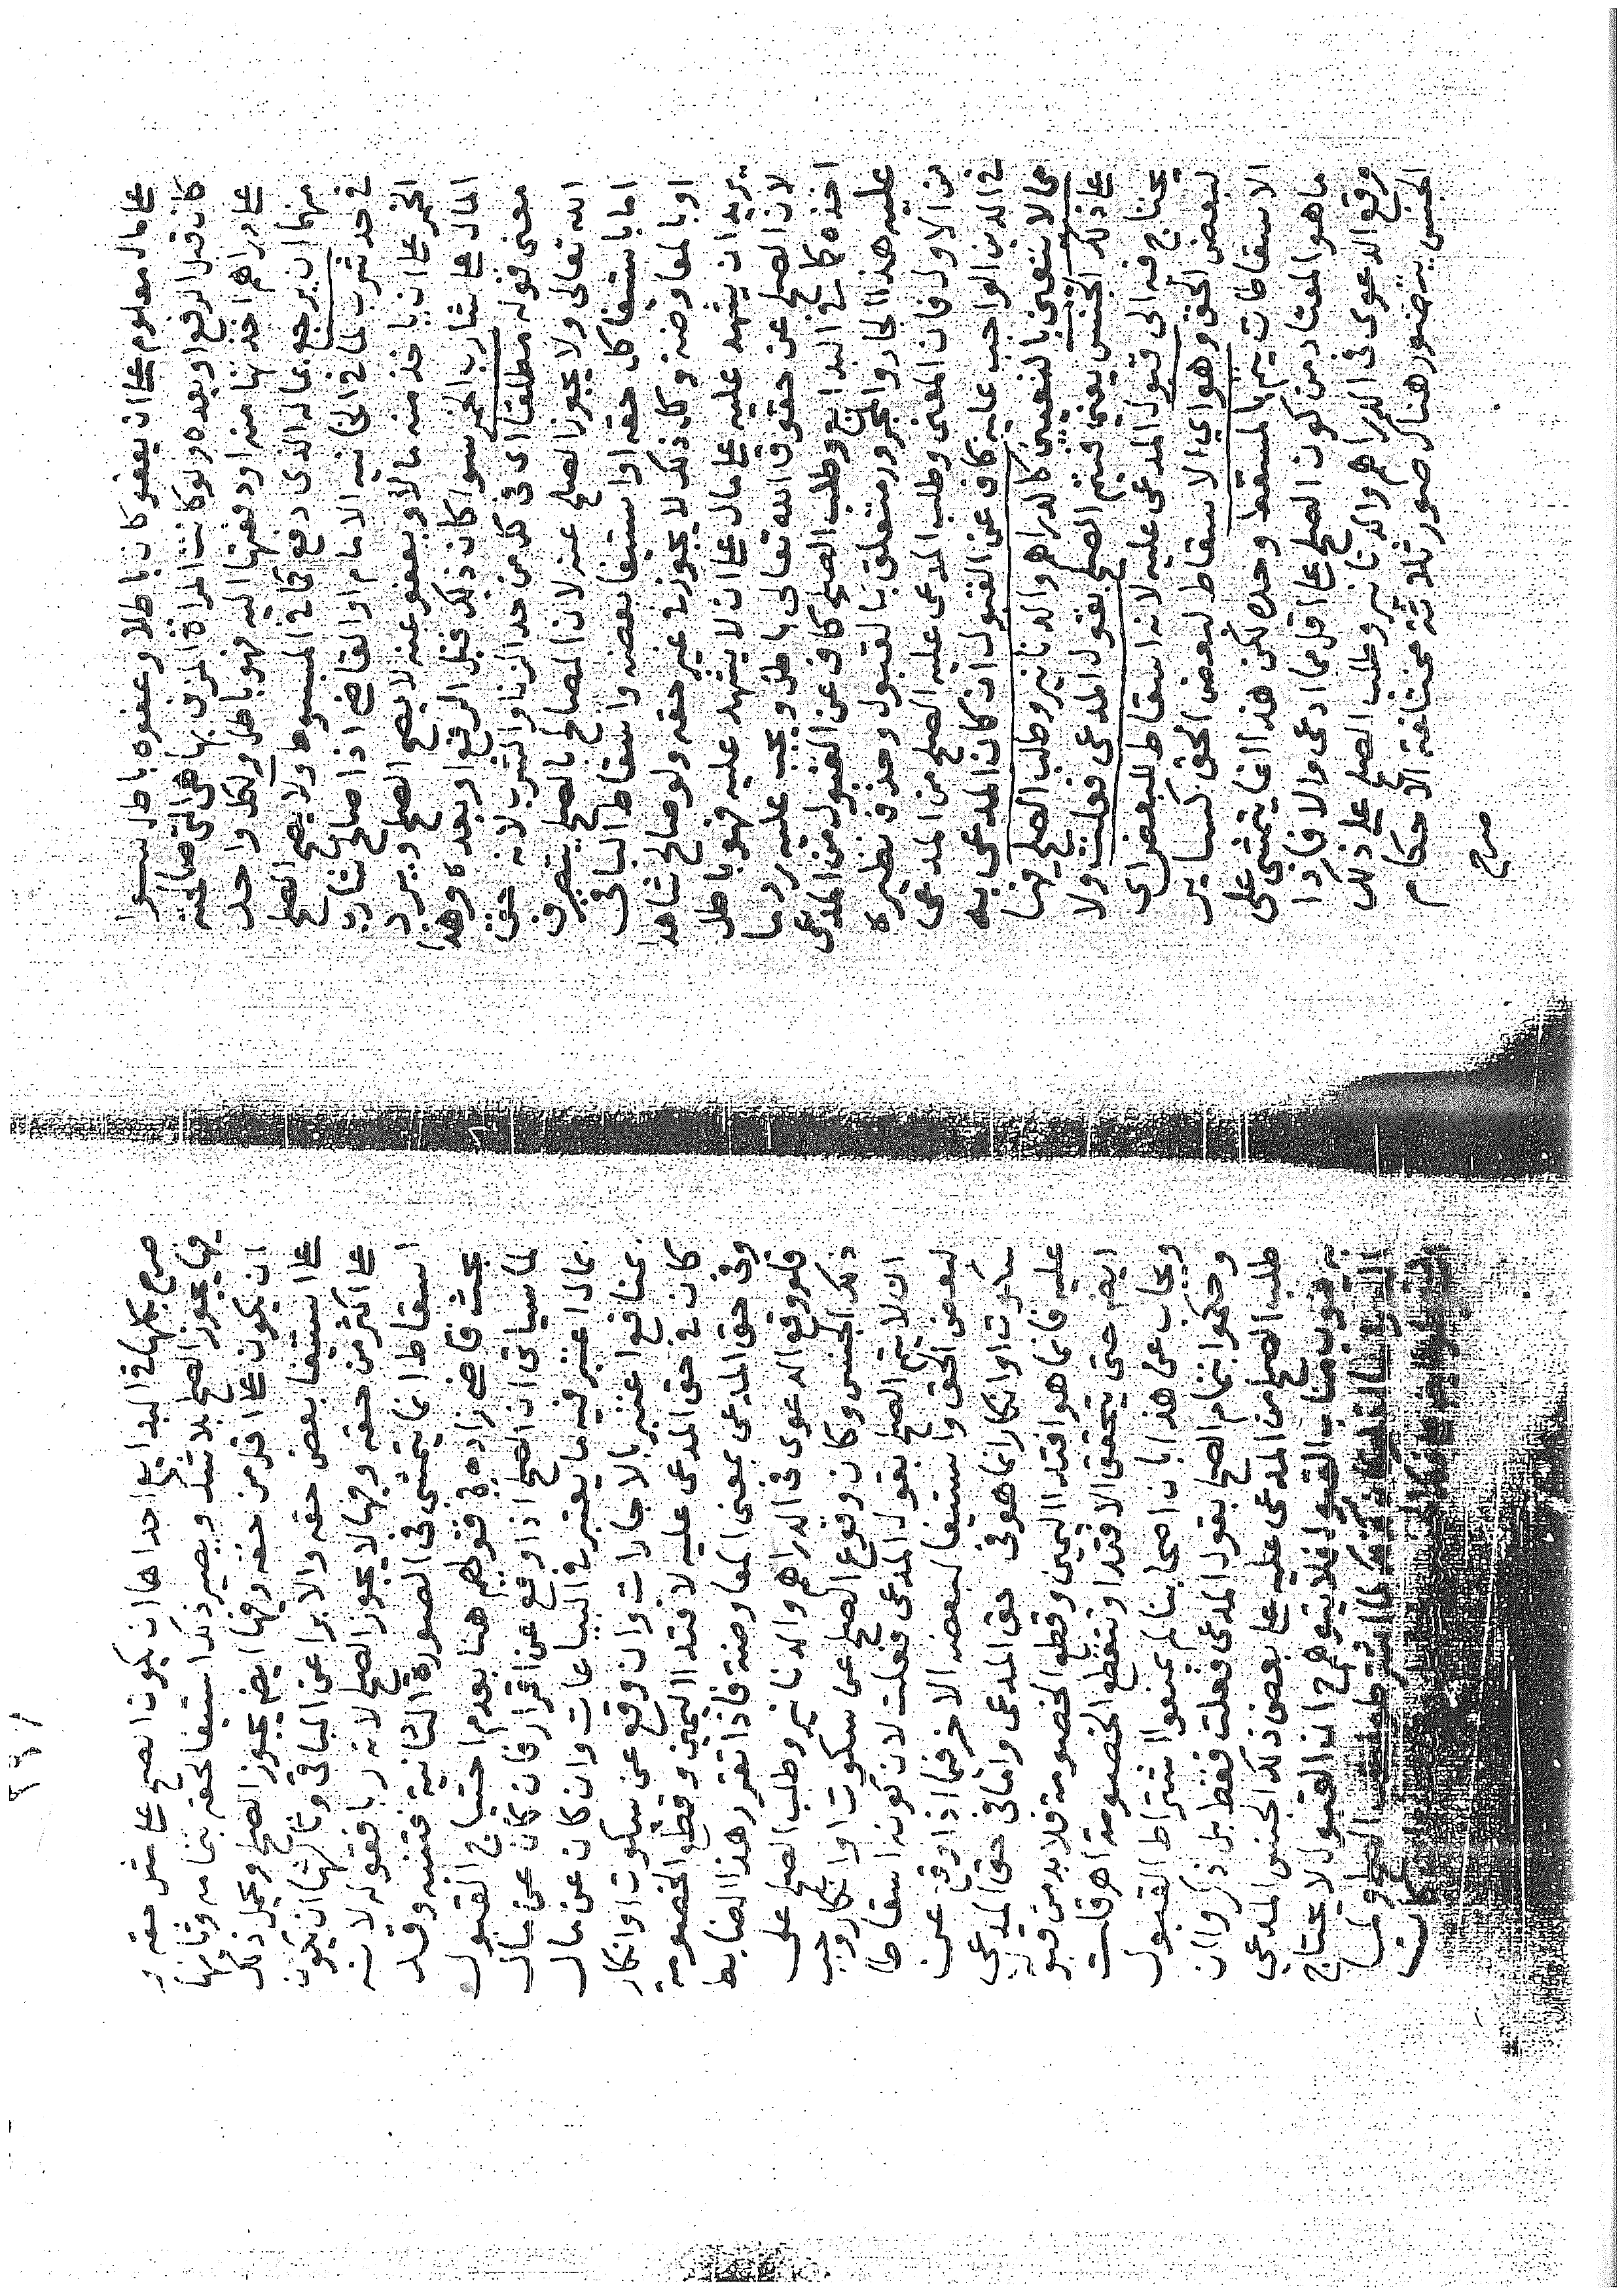 على مال معلوم على ان يعفو كان باطلا وعفوه باطل سوا
كان قبل الرفع او بعده ولو كانت المراة المزنى بها هى التى صالحته
على دراهم اخذتها منه او دفعتها اليه فهو باطل ولكل واحد
منهما ان يرجع بماله الذى دفع قال فى المبسوط ولا يصح الصلح
فى حد شرب لما فى الخانيه الامام او القاضى اذا صالح شارب
الخمر على ان ياخذ منه مالا ويعفو عنه لا يصح الصلح ويرد
المال على شارب الخمر سوا كان ذلك قبل الرفع او بعده وهذا
معنى قوله مطلقا اى فى كل من حد الزنا والشرب لانه حق
الله تعالى ولا يجوز الصلح عنه لان المصالح بالصلح يتصرف
اما باستيفا كل حقه او استيفا بعضه واسقاط الباقى
او بالمعاوضه وكل ذلك لا يجوز فى غير حقه ولو صالح شاهدا
يريد ان يشهد عليه على مال على ان لا يشهد عليه فهو باطل
لان الصلح عن حقوق الله تعالى باطل ويجب عليه رد ما
اخذه كما فى البدايع وطلب الصلح كاف عن القبول من المدعى
عليه هذا الجار والمجرور متعلق بالقبول وحذف نظيره
من الاول فان المعنى وطلب المدعى عليه الصلح من المدعى
فى الدين الواجب عليه كاف عن القبول ان كان المدعى به
مما لا يتعين بالتعيين كالدراهم والدنانير وطلب الصلح فيها
على ذلك الجنس يعنى فيتم الصلح بقول المدعى فعلت ولا
يحتاج فيه الى قبول المدعى عليه لانه اسقاط للبعض اى
لبعض الحق وهو اى الاسقاط لبعض الحق كساير
الاسقاطات يتم بالمسقط وحده لكن هذا انما يتمشى على
ما هو المعتاد من كون الصلح على اقل مما ادعى والا فاذا
وقع الدعوى فى الدراهم والدنانير وطلب الصلح على ذلك
الجنس يتصور هناك صور ثلاثة مختلفة الاحكام
صرح
صرح بكلها فى البدايع احداها ان يكون الصلح على مثل حقه
فيها يجوز الصلح بلا شك ويصير ذلك استيفا لحقه بتمامه وثانيها
ان يكون على اقل من حقه وفيها ايضا يجوز الصلح ويحمل ذلك
على استيفا بعض حقه والابرا عن الباقى وثالثها ان يكون
على اكثر من حقه وفيها لا يجوز الصلح لانه ربا فقوله لانه
اسقاط انما يتمشى فى الصورة الثانية فتنبه وقد
بحث قاضى زاده فى قولهم هنا بعدم احتياج القبول
لما سياتى ان الصلح اذا وقع عن اقرار فان كان عن مال
بمال اعتبر فيه ما يعتبر فى البياعات وان كان عن مال
بمنافع اعتبر بالاجارات وان وقع عن سكوت او انكار
كان فى حق المدعى عليه لافتدا اليمين وقطع الخصومة
وفى حق المدعى بمعنى المعاوضة فاذا تقرر هذا الضابط
فلو وقع الدعوى فى الدراهم والدنانير وطلب الصلح على
ذلك الجنس وكان وقوع الصلح عن سكوت او انكار وجب
ان لا يتم الصلح بقول المدعى فعلت لان كونه اسقاطا
لبعض الحق واستيفا لبعضه الاخر فيما اذا وقع عن
سكوت او انكار انما هو فى حق المدعى واما فى حق المدعى
عليه فانما هو افتدا اليمين وقطع الخصومة فلا بد من قبوله
ايضا حتى يتحقق الافتدا وتنقطع الخصومة اه قلت
ويجاب عن هذا بان اصحابنا لم يمنعوا اشتراط القبول
وحكموا بتمام الصلح بقول المدعى فعلت فقط بل ذكروا ان
طلب الصلح من المدعى عليه على بعض ذلك الجنس المدعى
به ينوب مناب القبول فلا يتوهم ان القبول لا يحتاج